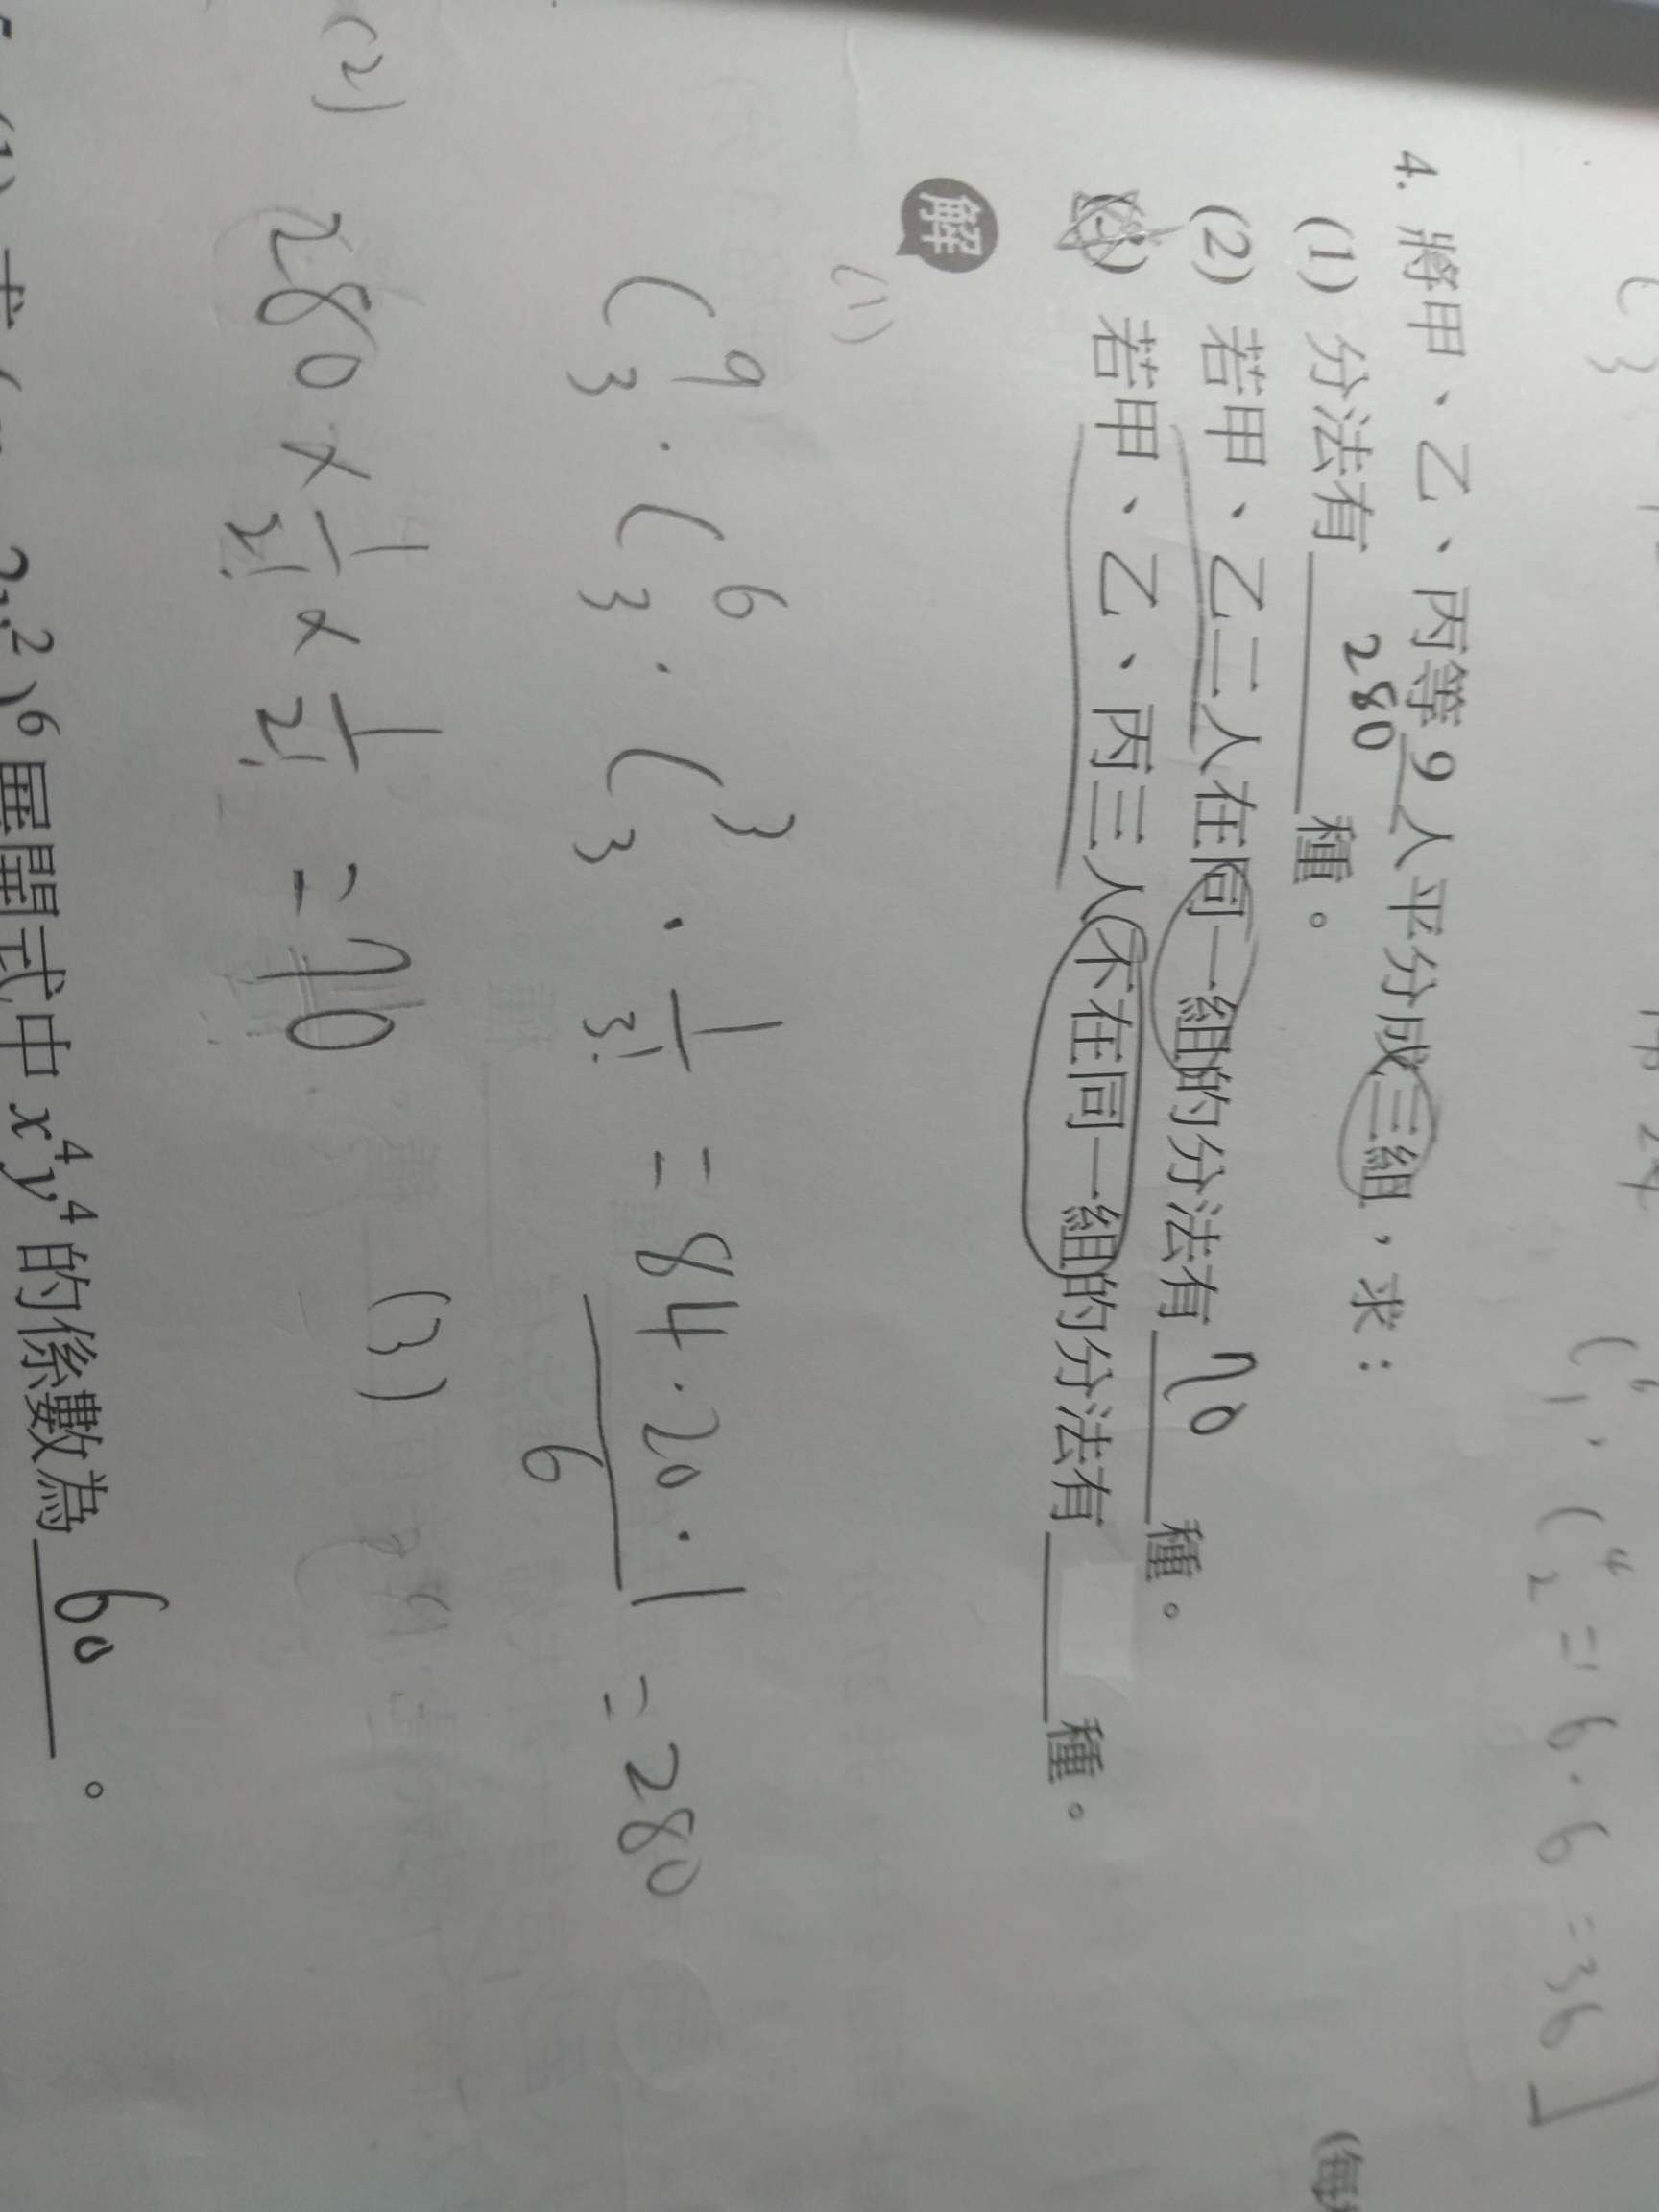 C₃
C⁶₁ · C⁴₂ = 6 · 6 = 36
(每
4. 將甲、乙、丙等 9 人平分成三組，求：
(1) 分法有 280 種。
(2) 若甲、乙二人在同一組的分法有 70 種。
(3) 若甲、乙、丙三人不在同一組的分法有 種。
解
(1)
C⁹₃ · C⁶₃ · C³₃ · 1/3! = 84 · 20 · 1 / 6 = 280
(2)
280 × 1/2! × 1/2! = 70
(3)
2)⁶ 展開式中 x⁴y⁴ 的係數為 60 。